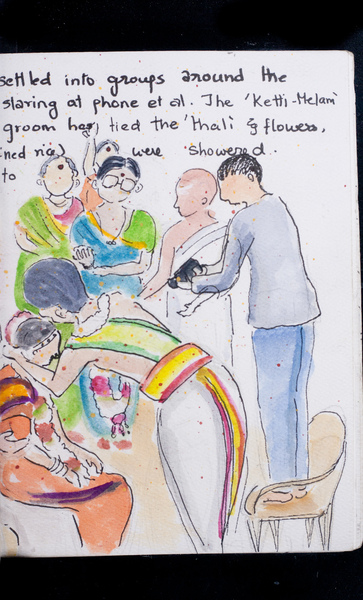 settled into groups around the
staring at phone et al. The 'Ketti-Melam'
groom has tied the 'thali' & flowers,
were showered.
to